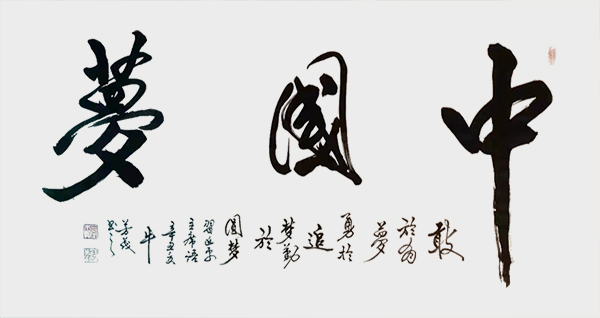 中國夢
敢
於有
夢
勇於
追
梦勤
於
圓梦
習近平
主席語
辛丑
牛